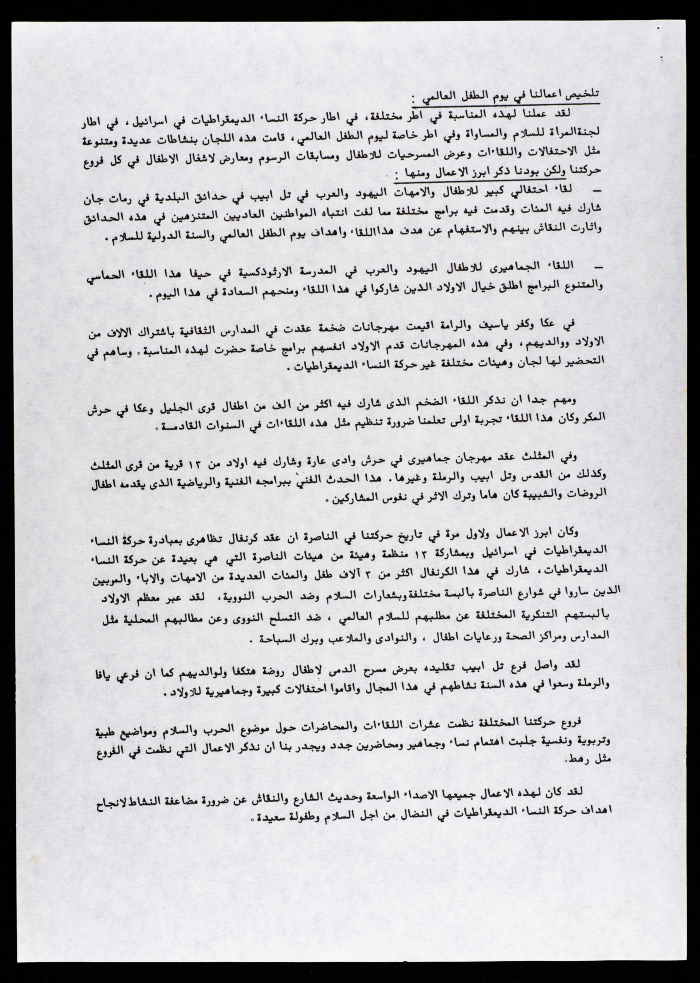 تلخيص اعمالنا في يوم الطفل العالمي :
لقد عملنا لهذه المناسبة في اطر مختلفة، في اطار حركة النساء الديمقراطيات في اسرائيل، في اطار
لجنة المراة للسلام والمساواة وفي اطر خاصة ليوم الطفل العالمي، قامت هذه اللجان بنشاطات عديدة ومتنوعة
مثل الاحتفالات واللقاءات وعرض المسرحيات للاطفال ومسابقات الرسوم ومعارض لاشغال الاطفال في كل فروع
حركتنا ولكن بودنا ذكر ابرز الاعمال ومنها :
ــ لقاء احتفالي كبير للاطفال والامهات اليهود والعرب في تل ابيب في حدائق البلدية في رمات جان
شارك فيه المئات وقدمت فيه برامج مختلفة مما لفت انتباه المواطنين العاديين المتنزهين في هذه الحدائق
واثارت النقاش بينهم والاستفهام عن هدف هذا اللقاء واهداف يوم الطفل العالمي والسنة الدولية للسلام .
ــ اللقاء الجماهيرى للاطفال اليهود والعرب في المدرسة الارثوذكسية في حيفا هذا اللقاء الحماسي
والمتنوع البرامج اطلق خيال الاولاد الذين شاركوا في هذا اللقاء ومنحهم السعادة في هذا اليوم .
في عكا وكفر ياسيف والرامة اقيمت مهرجانات ضخمة عقدت في المدارس الثقافية باشتراك الالاف من
الاولاد ووالديهم، وفي هذه المهرجانات قدم الاولاد انفسهم برامج خاصة حضرت لهذه المناسبة ، وساهم في
التحضير لها لجان وهيئات مختلفة غير حركة النساء الديمقراطيات .
ومهم جدا ان نذكر اللقاء الضخم الذى شارك فيه اكثر من الف من اطفال قرى الجليل وعكا في حرش
المكر وكان هذا اللقاء تجربة اولى تعلمنا ضرورة تنظيم مثل هذه اللقاءات في السنوات القادمة .
وفي المثلث عقد مهرجان جماهيرى في حرش وادى عارة وشارك فيه اولاد من ١٣ قرية من قرى المثلث
وكذلك من القدس وتل ابيب والرملة وغيرها . هذا الحدث الفني ببرامجه الفنية والرياضية الذى يقدمه اطفال
الروضات والشبيبة كان هاما وترك الاثر في نفوس المشاركين .
وكان ابرز الاعمال ولاول مرة في تاريخ حركتنا في الناصرة ان عقد كرنفال تظاهرى بمبادرة حركة النساء
الديمقراطيات في اسرائيل وبمشاركة ١٣ منظمة وهيئة من هيئات الناصرة التي هي بعيدة عن حركة النساء
الديمقراطيات، شارك في هذا الكرنفال اكثر من ٣ آلاف طفل والمئات العديدة من الامهات والاباء والمربين
الذين ساروا في شوارع الناصرة بالبسة مختلفة وبشعارات السلام وضد الحرب النووية، لقد عبر معظم الاولاد
بالبستهم التنكرية المختلفة عن مطلبهم للسلام العالمي ، ضد التسلح النووى وعن مطالبهم المحلية مثل
المدارس ومراكز الصحة ورعايات اطفال ، والنوادى والملاعب وبرك السباحة .
لقد واصل فرع تل ابيب تقليده بعرض مسرح الدمى لاطفال روضة هتكفا ولوالديهم كما ان فرعي يافا
والرملة وسعوا في هذه السنة نشاطهم في هذا المجال واقاموا احتفالات كبيرة وجماهيرية للاولاد .
فروع حركتنا المختلفة نظمت عشرات اللقاءات والمحاضرات حول موضوع الحرب والسلام ومواضيع طبية
وتربوية ونفسية جلبت اهتمام نساء وجماهير ومحاضرين جدد ويجدر بنا ان نذكر الاعمال التي نظمت في الفروع
مثل رهط.
لقد كان لهذه الاعمال جميعها الاصداء الواسعة وحديث الشارع والنقاش عن ضرورة مضاعفة النشاط لانجاح
اهداف حركة النساء الديمقراطيات في النضال من اجل السلام وطفولة سعيدة .